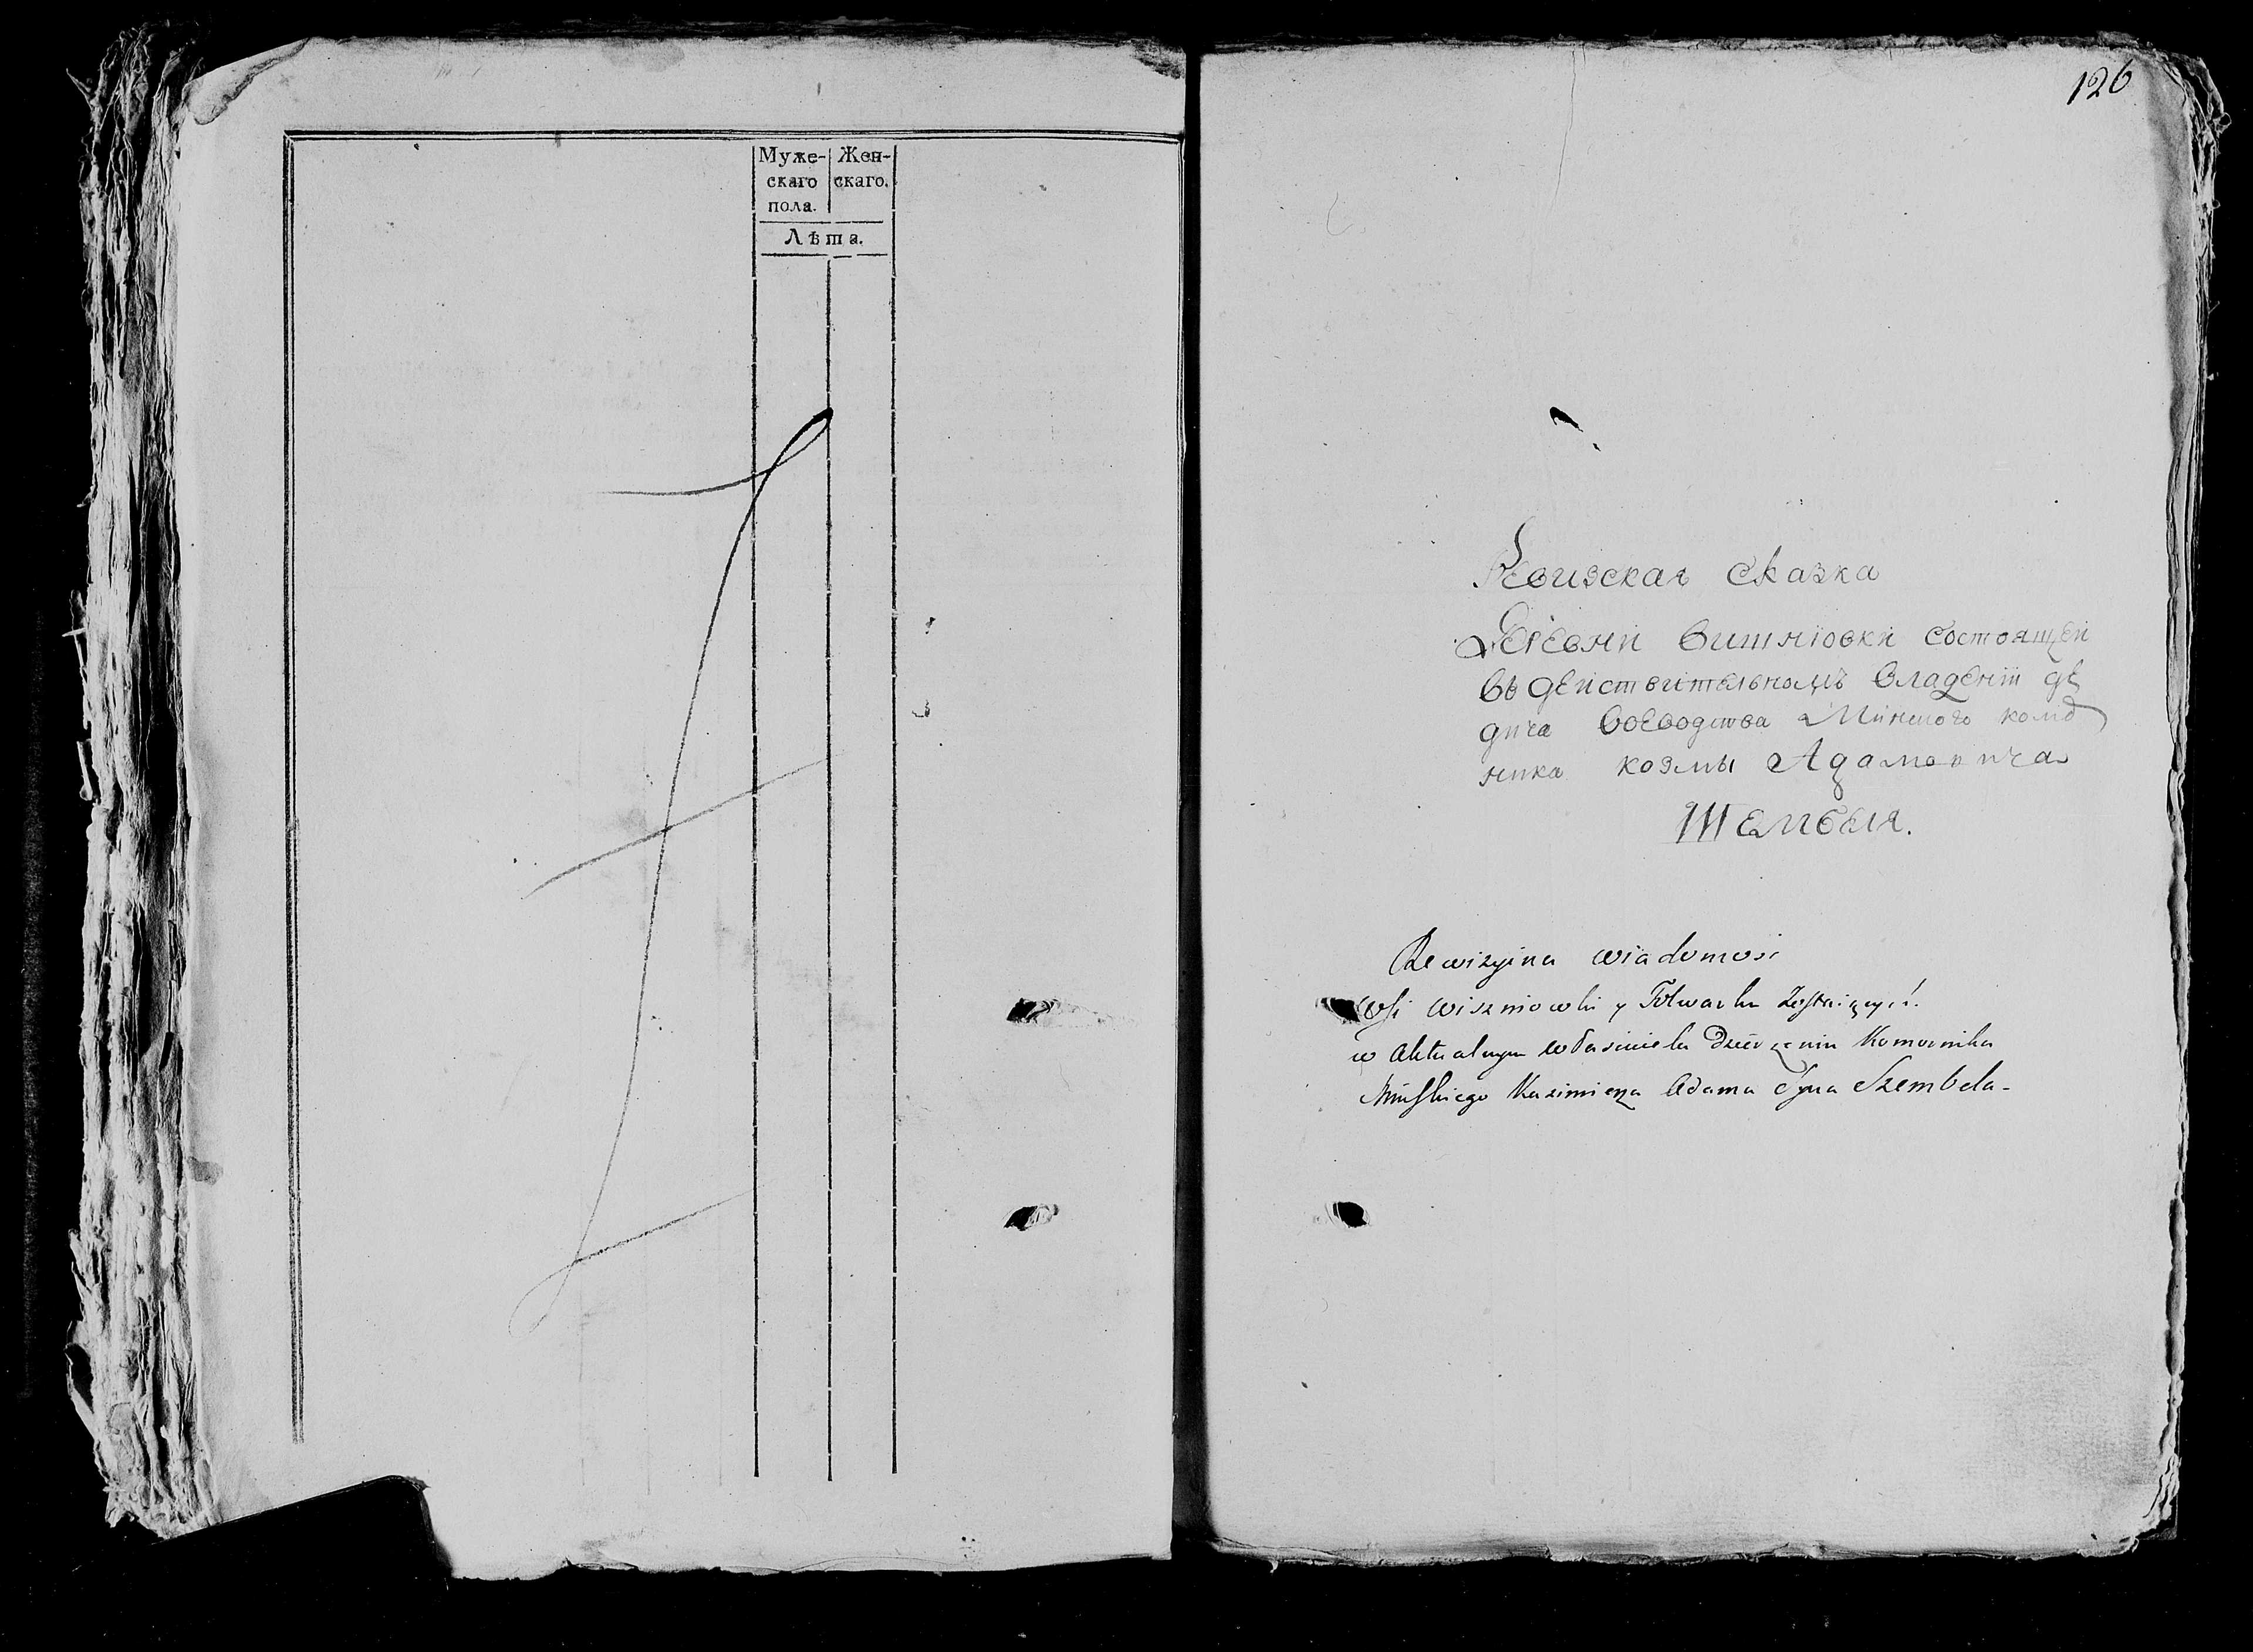 Муже- Жен-
скаго скаго.
пола.
Лѣта.
126
Ревизская сказка
Деревни вишнiовки состоящей
въ действительномъ владенiи де
дича воеводства Минского комо
рника козмы Адамовича
Шембеля.
Rewizyina wiadomosc
Wsi Wiszniowki y Folwarku Zostaiących
w Aktualnym własciciela Dzierżeniu Komornika
Minskiego Kazimierza Adama Syna Szembela-